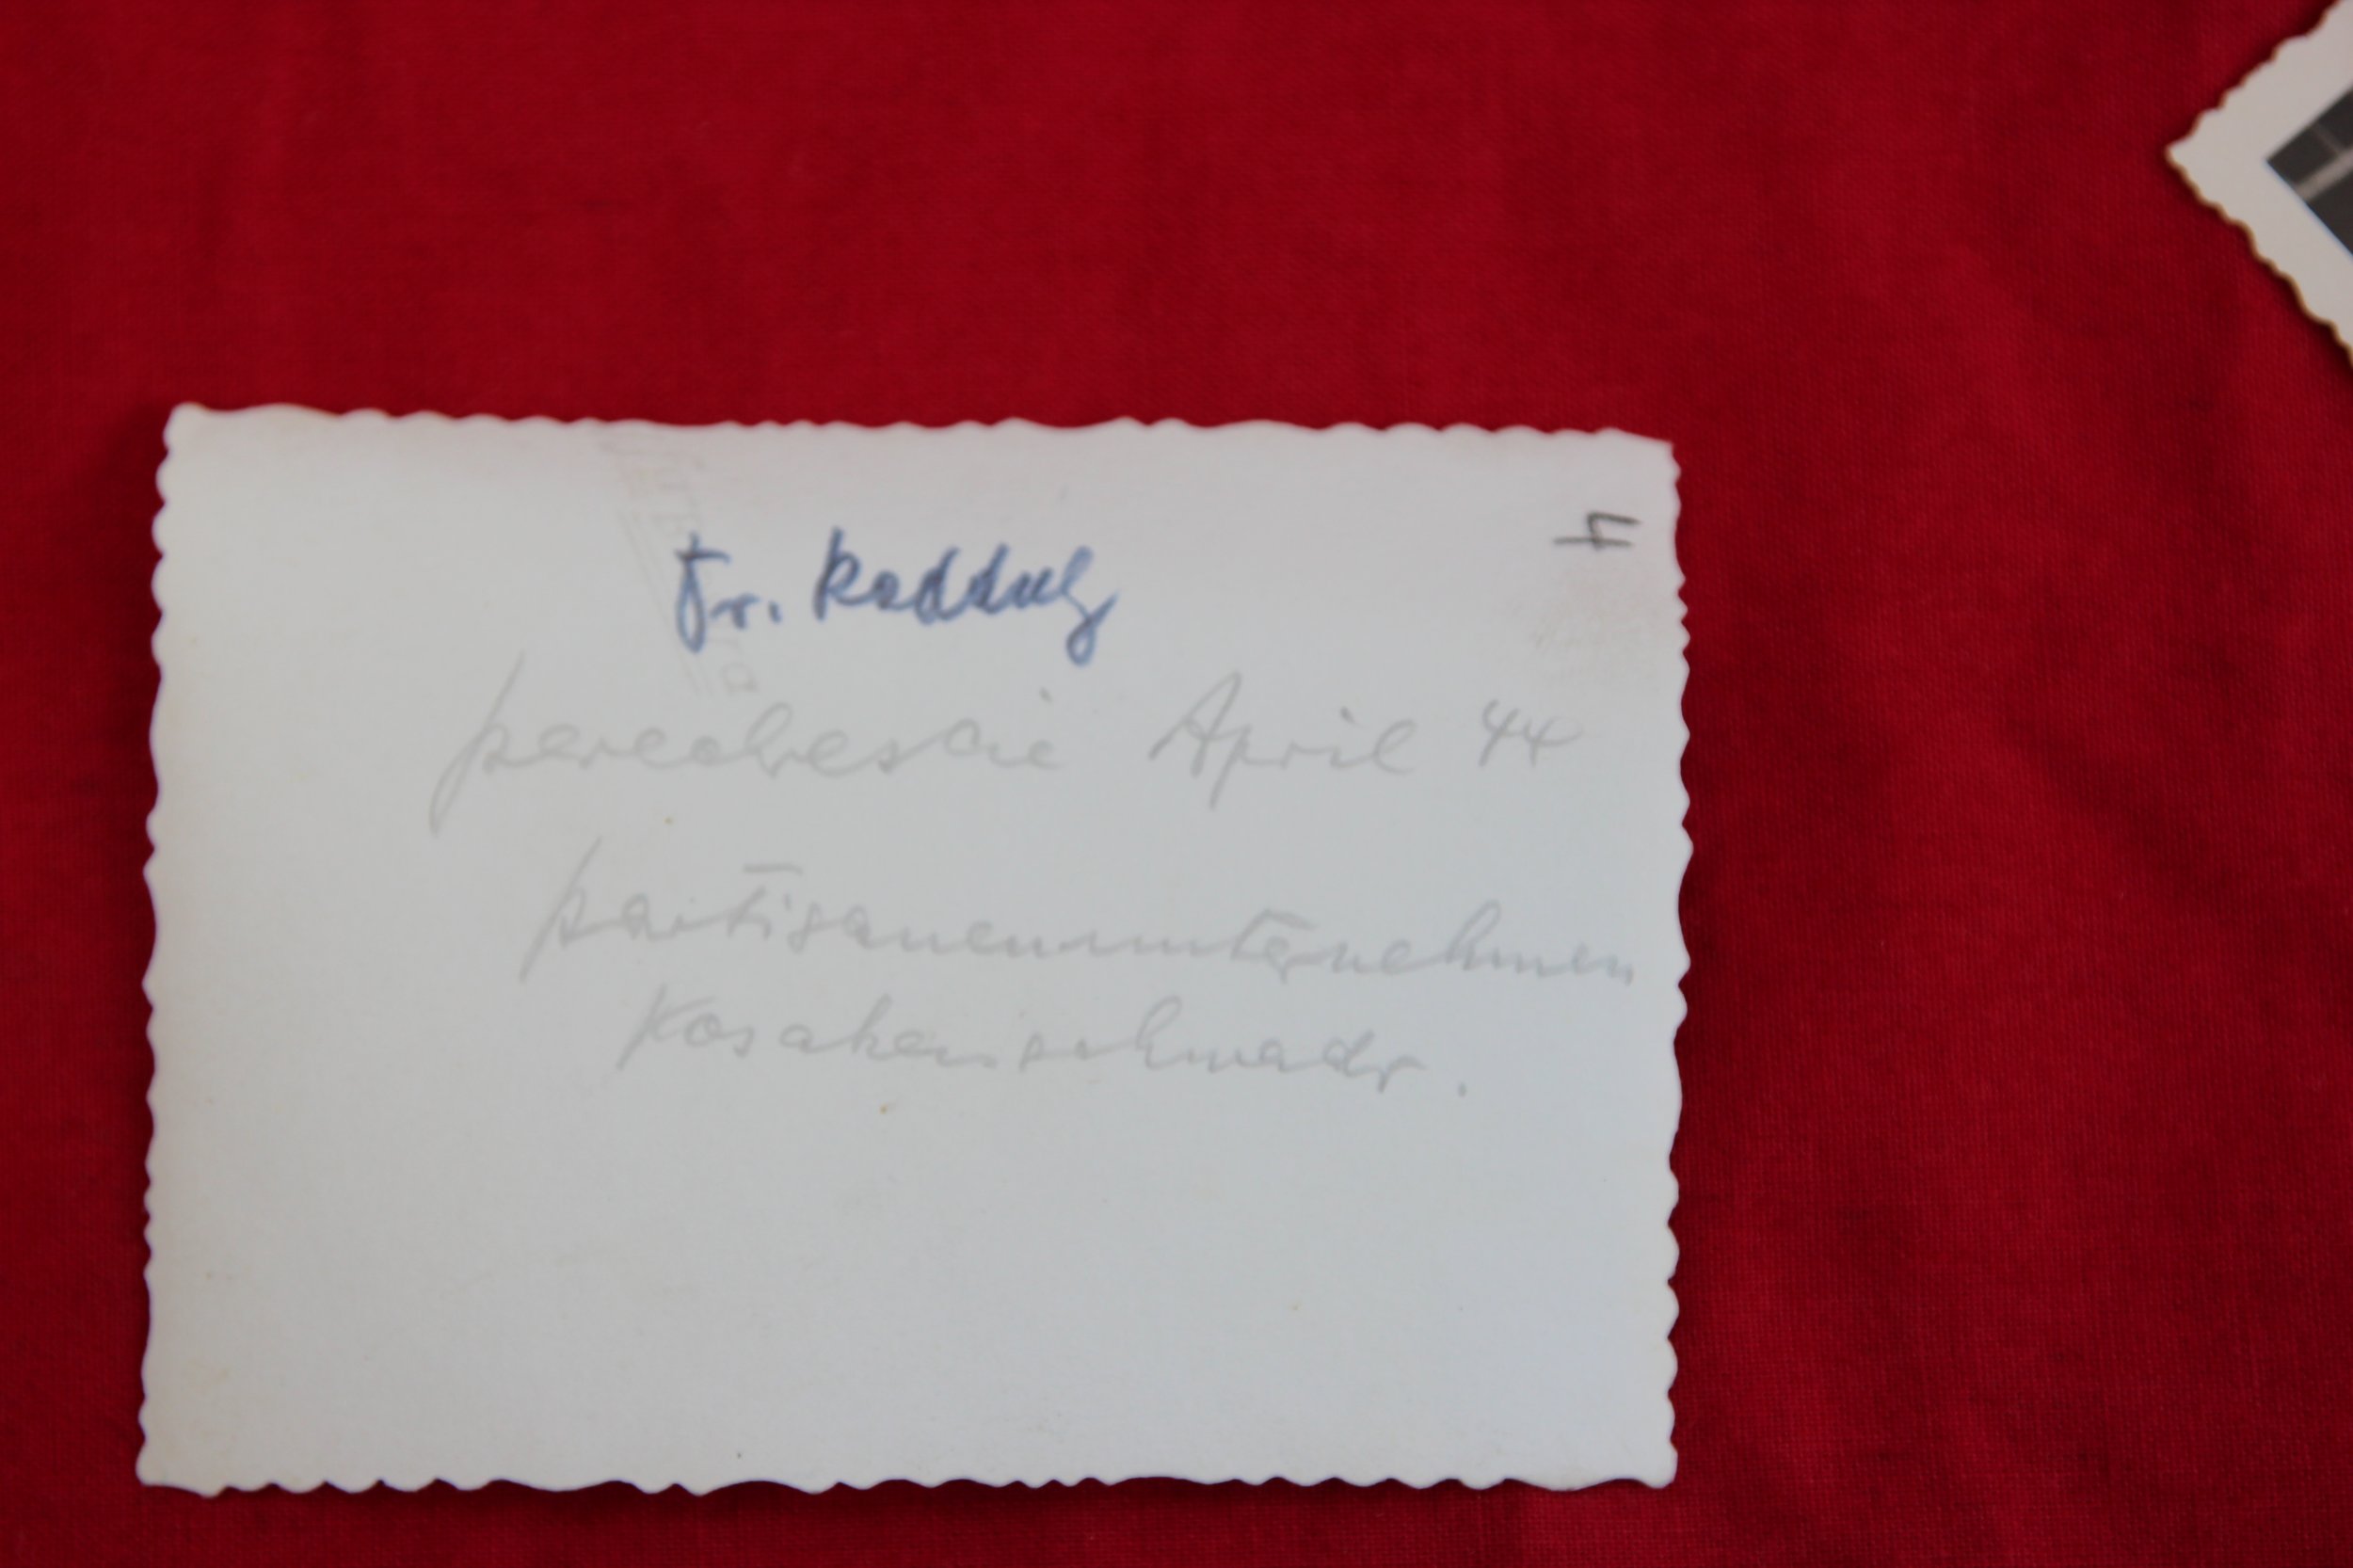 Fr. Raddatz
perechrestie April 44
partisanenunternehmen
Kosakenschwadr.